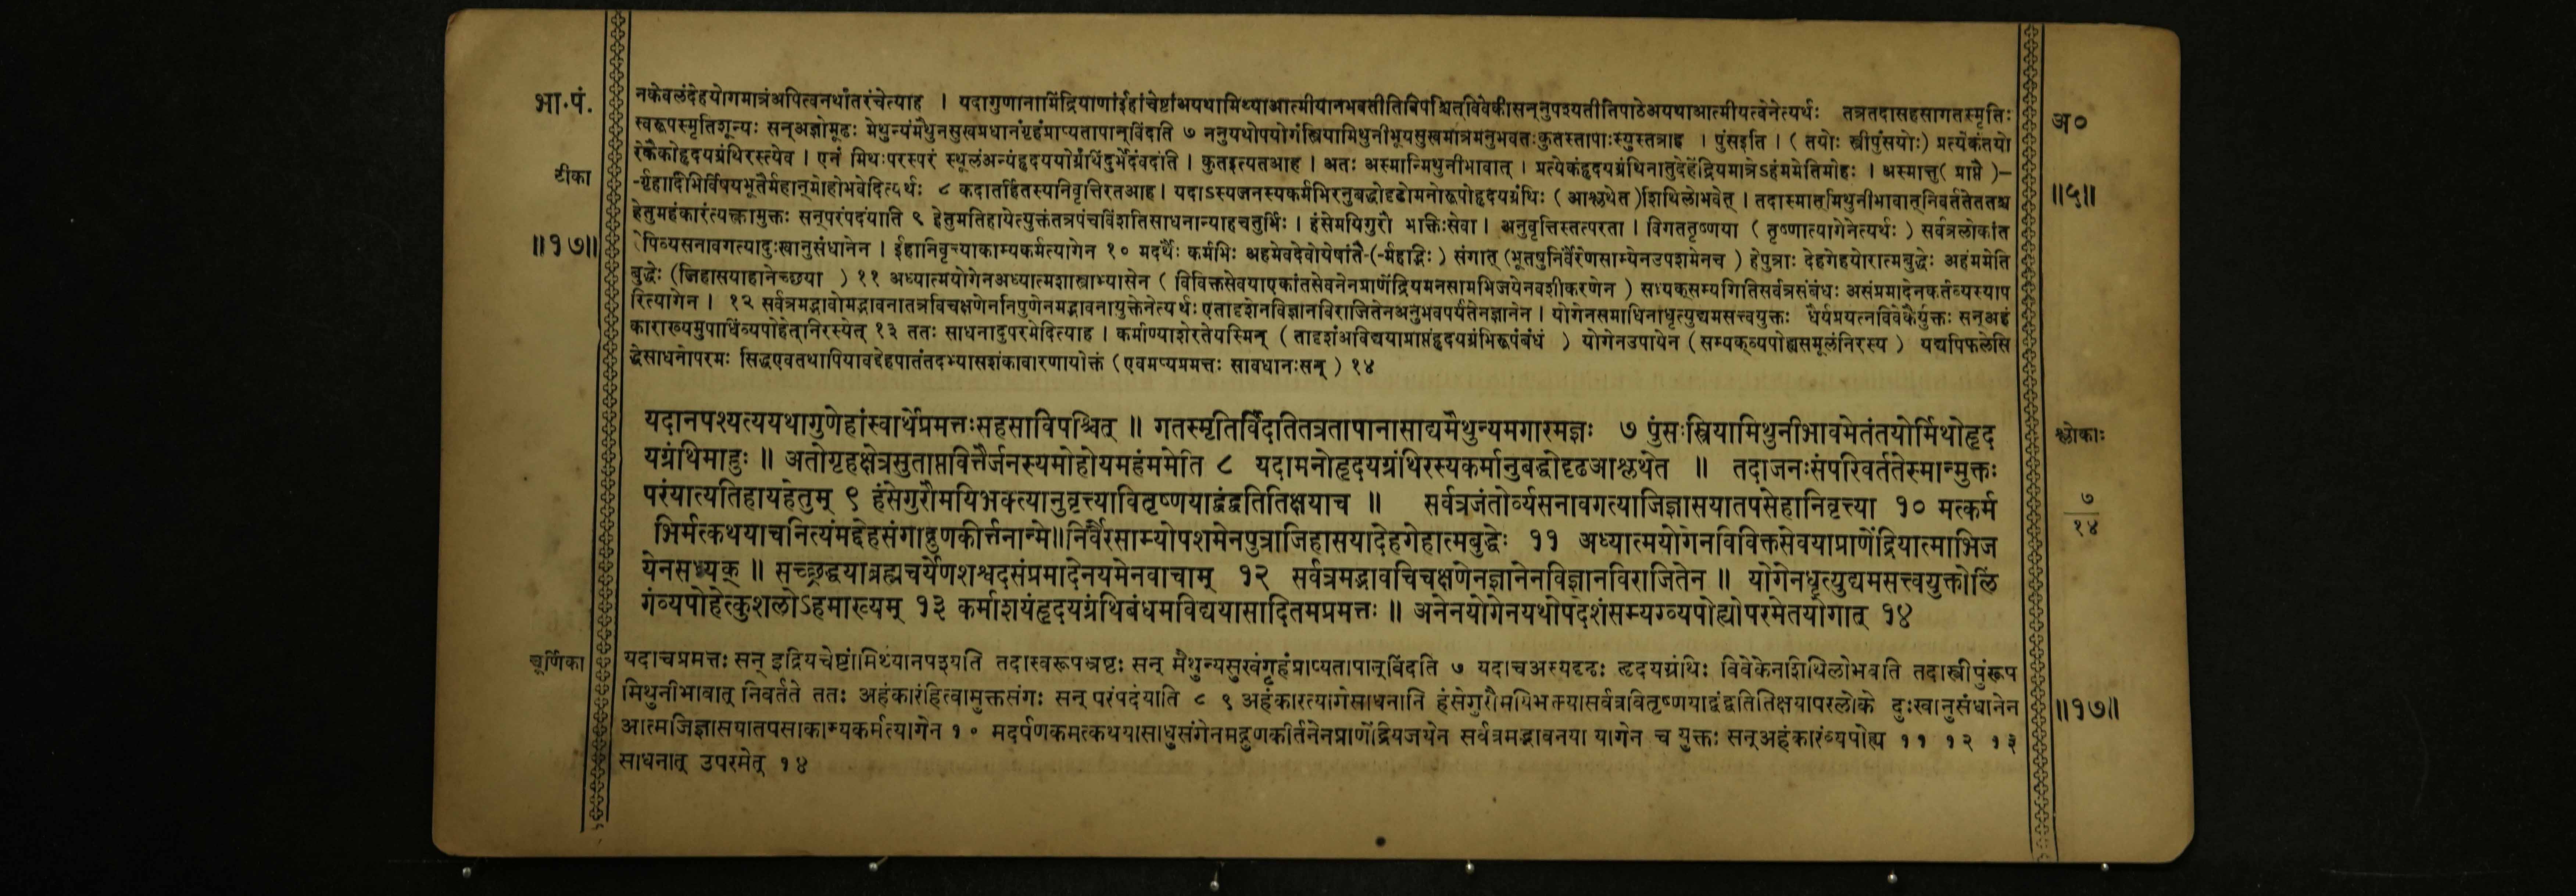 भा.पं.
टीका
॥१७॥
चूर्णिका
नकेवलंदेहयोगमात्रंअपित्वनर्थांतरंचेत्याह । यदागुणानामिंद्रियाणांईहांचेष्टांअयथामिथ्याआत्मीयानभवतीतिविपश्चित्विवेकीसन्नुपश्यतीतिपाठेअयथाआत्मीयत्वेनेत्यर्थः तत्रतदासहसागतस्मृतिः
स्वरूपस्मृतिशून्यः सन्अज्ञोमूढः मैथुन्यंमैथुनसुखप्रधानंगृहंप्राप्यतापान्विंदति ७ ननुयथोपयोगंस्त्रियामिथुनीभूयसुखमात्रमनुभवतःकुतस्तापाःस्युस्तत्राह । पुंसइति । ( तयोः स्त्रीपुंसयोः) प्रत्येकंतयो
रेकैकोहृदयग्रंथिरस्त्येव । एनं मिथःपरस्परं स्थूलंअन्यंहृदययोर्ग्रंथिंदुर्भेदंवदंति । कुतइत्यतआह । अतः अस्मान्मिथुनीभावात् । प्रत्येकंहृदयग्रंथिनातुदेहेंद्रियमात्रेऽहंममेतिमोहः । अस्मात्तु( प्राप्तै )—
-र्गृहादिभिर्विषयभूतैर्महान्मोहोभवेदित्यर्थः ८ कदातर्हितस्यनिवृत्तिरतआह। यदाऽस्यजनस्यकर्मभिरनुबद्धोदृढोमनोरूपोहृदयग्रंथिः ( आश्लथेत )शिथिलोभवेत् । तदास्मात्मिथुनीभावात्निवर्ततेततश्च
हेतुमहंकारंत्यक्त्वामुक्तः सन्परंपदंयाति ९ हेतुमतिहायेत्युक्तंतत्रपंचविंशतिसाधनान्याहचतुर्भिः । हंसेमयिगुरौ भक्तिःसेवा । अनुवृत्तिस्तत्परता । विगततृष्णया ( तृष्णात्यागेनेत्यर्थः ) सर्वत्रलोकांत
रेपिव्यसनावगत्यादुःखानुसंधानेन । ईहानिवृत्त्याकाम्यकर्मत्यागेन १० मदर्थैः कर्मभिः अहमेवदेवोयेषांतै-(-र्महद्भिः ) संगात् (भूतषुनिर्वैरेणसाम्येनउपशमेनच ) हेपुत्राः देहगेहयोरात्मबुद्धेः अहंममेति
बुद्धेः (जिहासयाहानेच्छया ) ११ अध्यात्मयोगेनअध्यात्मशास्त्राभ्यासेन ( विविक्तसेवयाएकांतसेवनेनप्राणेंद्रियमनसामभिजयेनवशीकरणेन ) सध्यक्सम्यगितिसर्वत्रसंबंधः असंप्रमादेनकर्तव्यस्याप
रित्यागेन । १२ सर्वत्रमद्भावोमद्भावनातत्रविचक्षणेननिपुणेनमद्भावनायुक्तेनेत्यर्थः एतादृशेनविज्ञानविराजितेनअनुभवपर्यंतेनज्ञानेन । योगेनसमाधिनाधृत्युद्यमसत्त्वयुक्तः धैर्यप्रयत्नविवेकैर्युक्तः सन्अहं
काराख्यमुपाधिंव्यपोहेत्निरस्येत् १३ ततः साधनादुपरमेदित्याह । कर्माण्याशेरतेयस्मिन् ( तादृशंअविद्ययाप्राप्तंहृदयग्रंथिरूपंबंधं ) योगेनउपायेन (सम्यक्व्यपोह्यसमूलंनिरस्य ) यद्यपिफलेसि
द्धेसाधनोपरमः सिद्धएवतथापियावद्देहपातंतदभ्यासशंकावारणायोक्तं (एवमप्यप्रमत्तः सावधानःसन् ) १४
यदानपश्यत्ययथागुणेहांस्वार्थेप्रमत्तःसहसाविपश्चित् ॥ गतस्मृतिर्विंदतितत्रतापानासाद्यमैथुन्यमगारमज्ञः ७ पुंसःस्त्रियामिथुनीभावमेतंतयोर्मिथोहृद
यग्रंथिमाहुः ॥ अतोगृहक्षेत्रसुताप्तवित्तैर्जनस्यमोहोयमहंममेति ८ यदामनोहृदयग्रंथिरस्यकर्मानुबद्धोदृढआश्लथेत ॥ तदाजनःसंपरिवर्ततेस्मान्मुक्तः
परंयात्यतिहायहेतुम् ९ हंसेगुरौमयिभक्त्यानुवृत्त्यावितृष्णयाद्वंद्वतितिक्षयाच ॥ सर्वत्रजंतोर्व्यसनावगत्याजिज्ञासयातपसेहानिवृत्त्या १० मत्कर्म
भिर्मत्कथयाचनित्यंमद्देहसंगाद्गुणकीर्त्तनान्मे॥निर्वैरसाम्योपशमेनपुत्राजिहासयादेहगेहात्मबुद्धेः ११ अध्यात्मयोगेनविविक्तसेवयाप्राणेंद्रियात्माभिज
येनसध्र्यक् ॥ सच्छ्रद्धयाब्रह्मचर्येणशश्वदसंप्रमादेनयमेनवाचाम् १२ सर्वत्रमद्भावचिचक्षणेनज्ञानेनविज्ञानविराजितेन ॥ योगेनधृत्युद्यमसत्त्वयुक्तोलिं
गंव्यपोहेत्कुशलोऽहमाख्यम् १३ कर्माशयंहृदयग्रंथिबंधमविद्ययासादितमप्रमत्तः ॥ अनेनयोगेनयथोपदेशंसम्यग्व्यपोह्योपरमेतयोगात् १४
यदाचप्रमत्तः सन् इद्रियचेष्टांमिथ्यानपश्यति तदास्वरूपभ्रष्टः सन् मैथुन्यसुखंगृहंप्राप्यतापान्विंदति ७ यदाचअस्यदृढः हृदयग्रंथिः विवेकेनशिथिलोभवति तदास्त्रीपुंरूप
मिथुनीभावात् निवर्तते ततः अहंकारंहित्वामुक्तसंगः सन् परंपदंयाति ८ ९ अहंकारत्यागेसाधनानि हंसेगुरौमयिभक्त्यासर्वत्रवितृष्णयाद्वंद्वतितिक्षयापरलोके दुःखानुसंधानेन
आत्मजिज्ञासयातपसाकाम्यकर्मत्यागेन १० मदर्पणकमत्कथयासाधुसंगेनमद्गुणकीर्तनेनप्राणेंद्रियजयेन सर्वत्रमद्भावनया यागेन च युक्तः सन्अहंकारंव्यपोह्य ११ १२ १३
साधनात् उपरमेत् १४
अ०
॥५॥
श्लोकाः
७
१४
॥१७॥